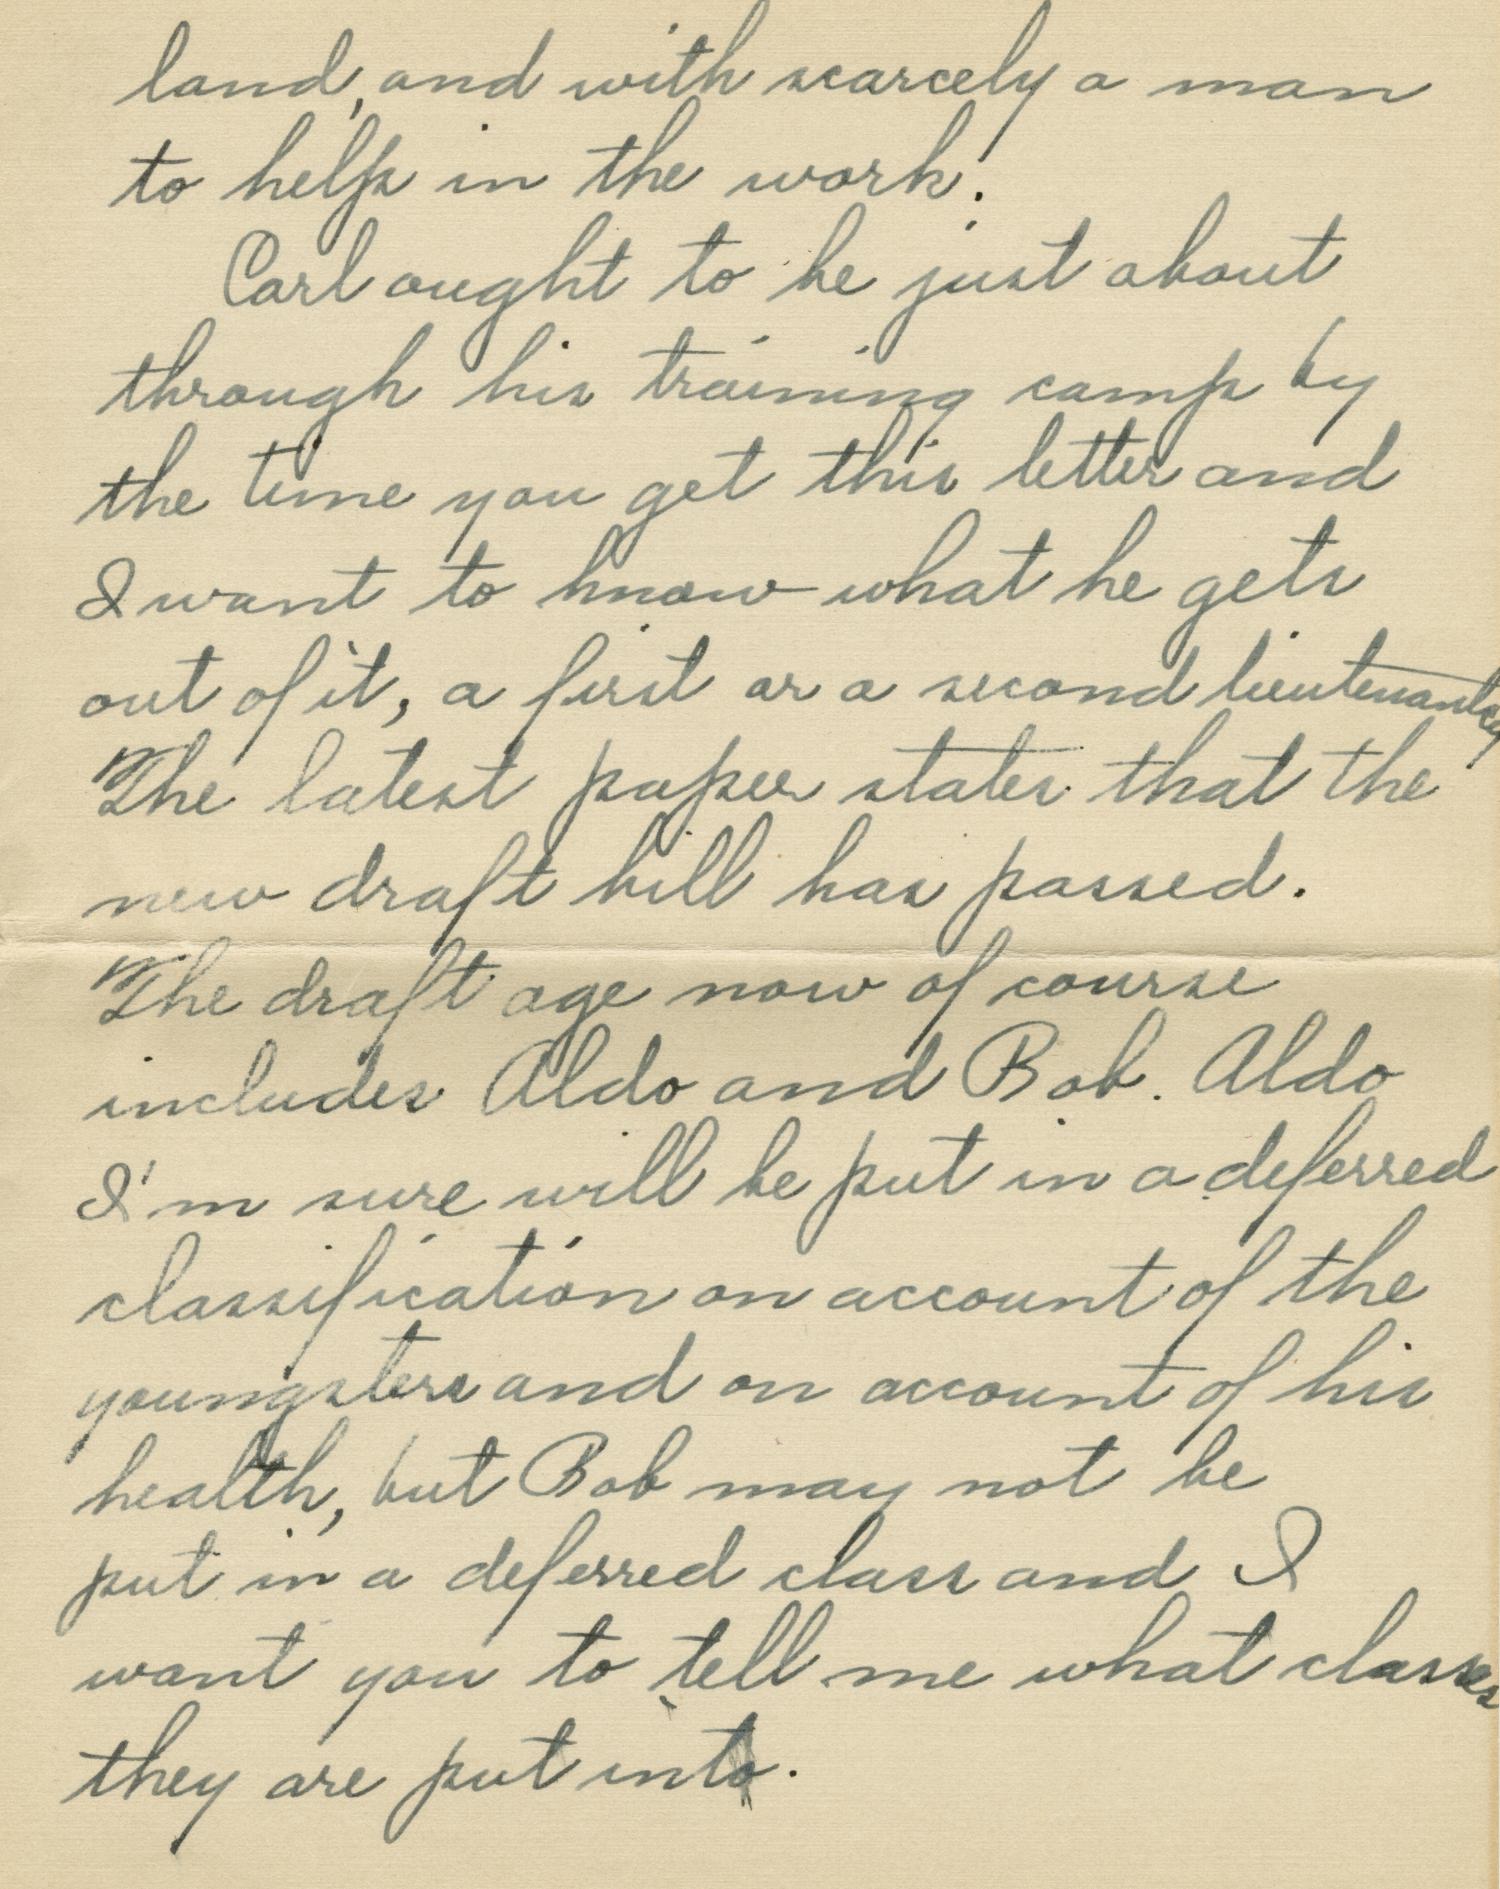 land, and with scarcely a man
to help in the work!
Carl ought to be just about
through his training camp by
the time you get this letter and
I want to know what he gets
out of it, a first or a second lieutenantcy
The latest paper states that the
new draft bill has passed.
The draft age now of course
includes Aldo and Bob. Aldo
I'm sure will be put in a deferred
classification on account of the
youngsters and on account of his
health, but Bob may not be
put in a deferred class and I
want you to tell me what classes
they are put into.